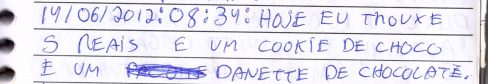 14/06/2012: 08:34: HOJE EU THOUXE
5 REAIS E UM COOKIE DE CHOCO
E UM DANETTE DE CHOCOLATE.